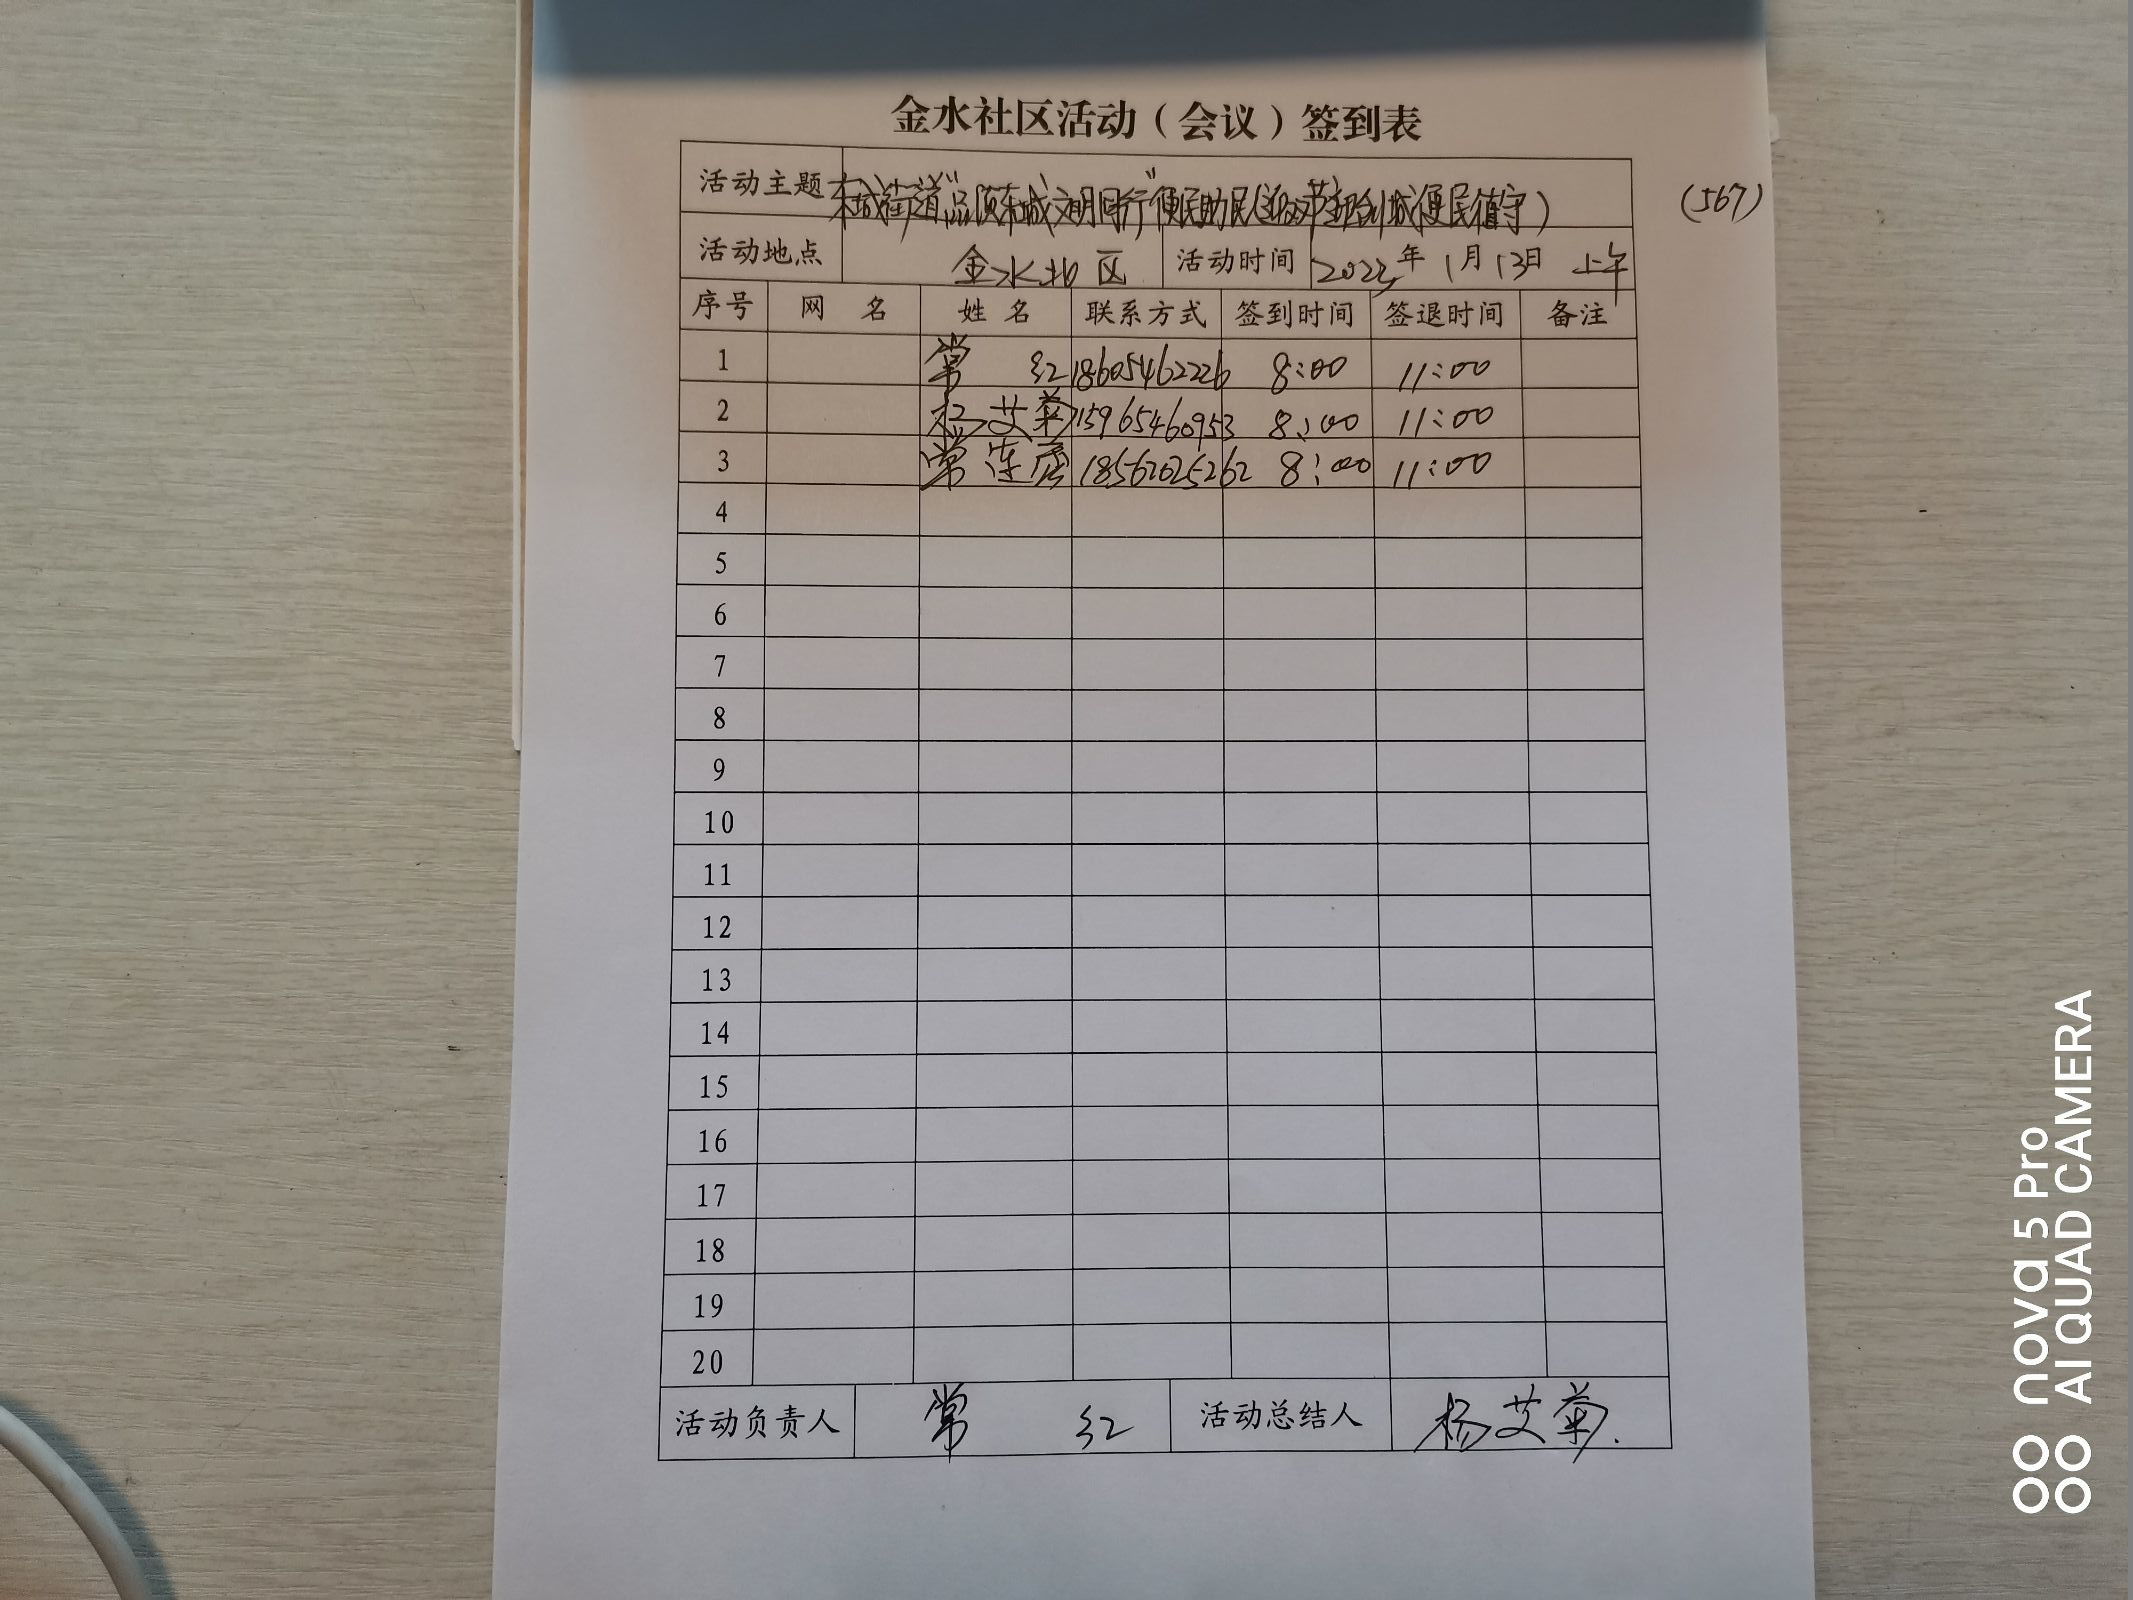 金水社区活动（会议）签到表
活动主题 东城街道"品质东城 文明同行"便民助民( 创城便民值守) (567)
活动地点 金水北区 活动时间 2023年1月13日 上午
序号 网 名 姓 名 联系方式 签到时间 签退时间 备注
1 常 红 18605462226 8:00 11:00
2 杨艾菊 15965460953 8:00 11:00
3 常连彦 18562025262 8:00 11:00
4
5
6
7
8
9
10
11
12
13
14
15
16
17
18
19
20
活动负责人 常 红 活动总结人 杨艾菊.
nova 5 Pro
AI QUAD CAMERA